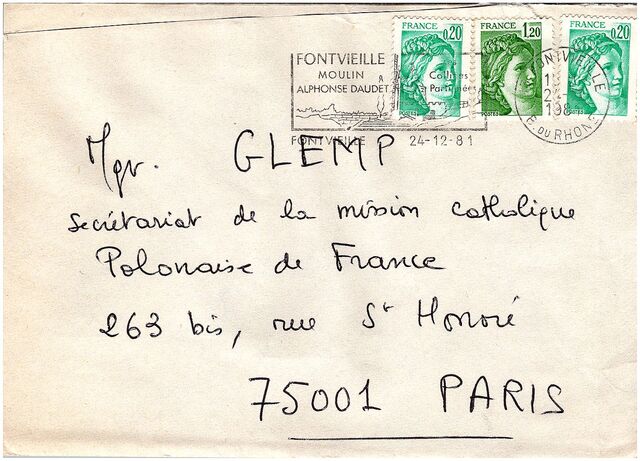 FRANCE 0,20 POSTES
FRANCE 1,20 POSTES
FRANCE 0,20 POSTES
FONTVIEILLE
MOULIN
ALPHONSE DAUDET
Collines
Parfumées
FONTVIEILLE 24-12-81
FONTVIEILLE
B. DU RHONE
Mgr. GLEMP
Secrétariat de la mission catholique
Polonaise de France
263 bis, rue St Honoré
75001 PARIS